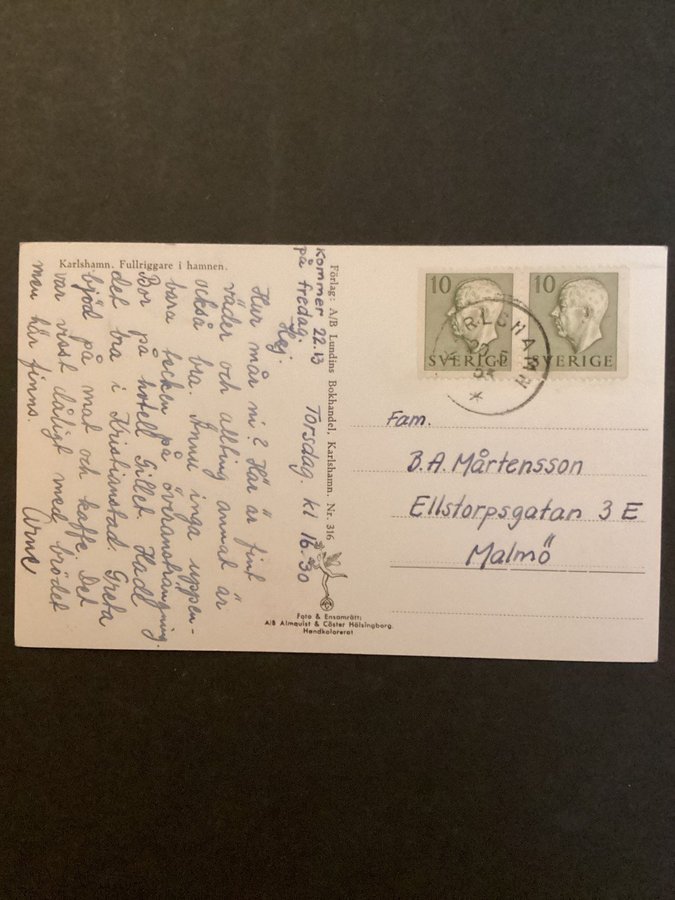 Karlshamn. Fullriggare i hamnen.
Kommer 22.13
på fredag
Torsdag. kl 16.30
Hej
Hur mår ni? Här är fint
väder och allting annat är
också bra. Ännu inga uppen-
bara tecken på överansträngning.
Bor på hotell Gillet. Hade
det bra i Kristianstad. Greta
bjöd på mat och kaffe. Det
var visst dåligt med brödet
men här finns.
Arne
Förlag: A/B Lundins Bokhandel, Karlshamn. Nr. 316
Foto & Ensamrätt:
A/B Almquist & Cöster Hälsingborg.
Handkolorerat
10
SVERIGE
10
SVERIGE
KARLSHAMN
Fam.
B.A. Mårtensson
Ellstorpsgatan 3 E
Malmö